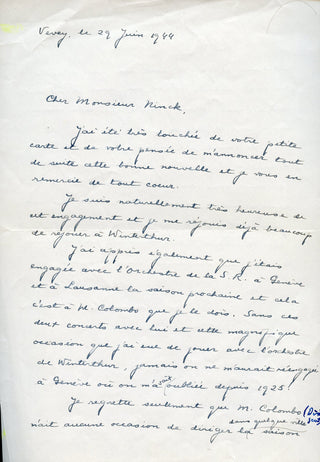 Vevey, le 29 Juin 1944
Cher Monsieur Ninck,
J'ai été très touchée de votre petite
carte et de votre pensée de m'annoncer tout
de suite cette bonne nouvelle et je vous en
remercie de tout coeur.
Je suis naturellement très heureuse de
cet engagement et je me réjouis déjà beaucoup
de rejouer à Winterthur.
J'ai appris également que j'étais
engagée avec l'Orchestre de la S.R. à Genève
et à Lausanne la saison prochaine et cela
c'est à M. Colombo que je le dois. Sans ces
deux concerts avec lui et cette magnifique
occasion que j'ai eue de jouer avec l'orchestre
de Winterthur, jamais on ne m'aurait réengagée
à Genève où on m'a oubliée depuis 1925!
Je regrette seulement que M. Colombo
n'ait aucune occasion de diriger dans quelque ville
la saison